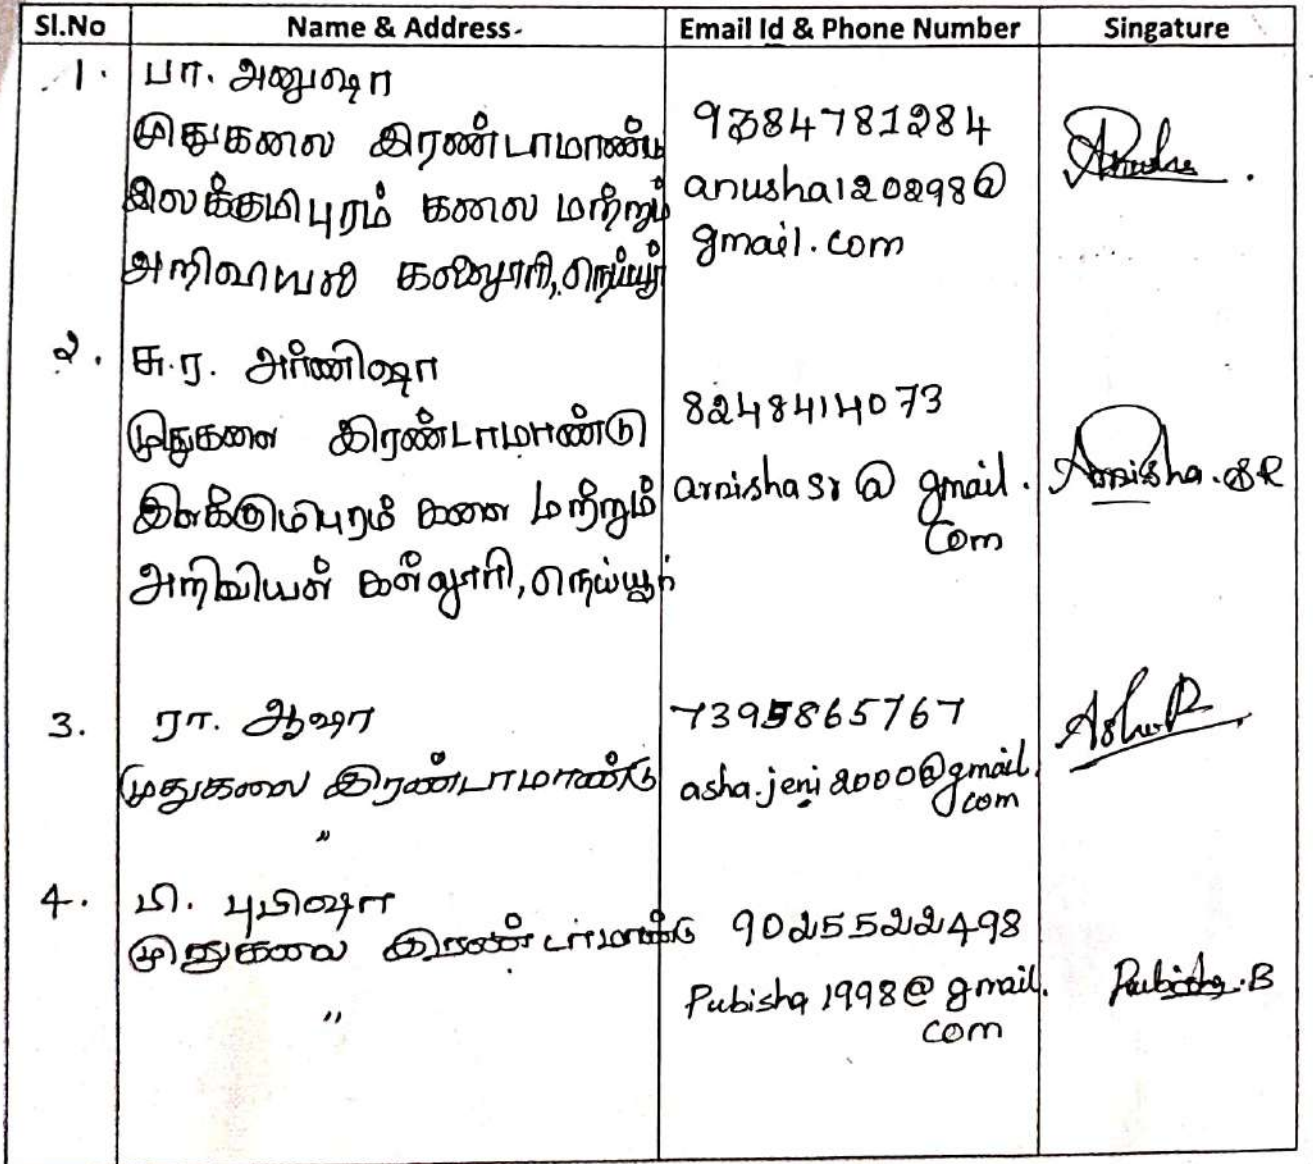 Sl.No Name & Address Email Id & Phone Number Singature
1. பா. அனுஷா
முதுகலை இரண்டாமாண்டு
இலக்குமிபுரம் கலை மற்றும்
அறிவியல் கல்லூரி, நெய்யூர்
9384781284
anusha120298@
gmail.com
Anusha
2. சு.ர. அர்னிஷா
முதுகலை இரண்டாமாண்டு
இலக்குமிபுரம் கலை மற்றும்
அறிவியல் கல்லூரி, நெய்யூர்
8248414073
arnishasr@gmail.
com
Arnisha.SR
3. ரா. ஆஷா
முதுகலை இரண்டாமாண்டு
"
7395865767
asha.jeni2000@gmail.
com
Asha R
4. பி. புபிஷா
முதுகலை இரண்டாமாண்டு
"
9025522498
Pubisha1998@gmail.
com
Pubisha.B